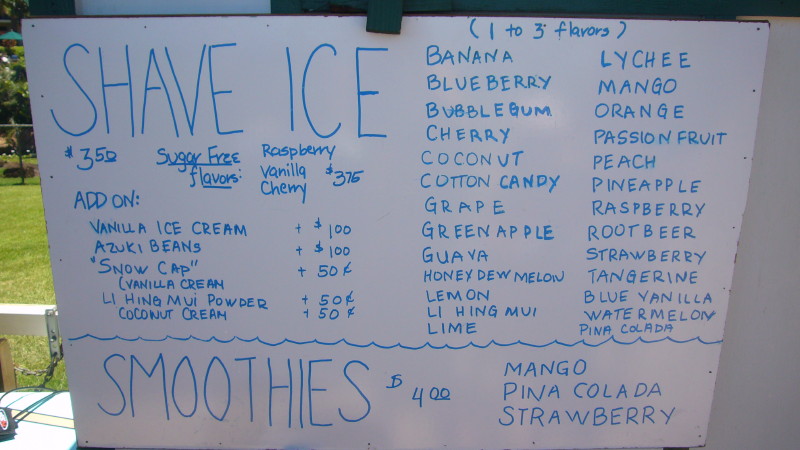 SHAVE ICE
$3.50
Sugar Free flavors:
Raspberry
Vanilla
Cherry
$3.75
ADD ON:
VANILLA ICE CREAM + $1.00
AZUKI BEANS + $1.00
"SNOW CAP" + 50¢
(VANILLA CREAM
LI HING MUI POWDER + 50¢
COCONUT CREAM + 50¢
(1 to 3 flavors)
BANANA
BLUEBERRY
BUBBLEGUM
CHERRY
COCONUT
COTTON CANDY
GRAPE
GREEN APPLE
GUAVA
HONEYDEW MELON
LEMON
LI HING MUI
LIME
LYCHEE
MANGO
ORANGE
PASSION FRUIT
PEACH
PINEAPPLE
RASPBERRY
ROOTBEER
STRAWBERRY
TANGERINE
BLUE VANILLA
WATERMELON
PINA COLADA
SMOOTHIES
$4.00
MANGO
PINA COLADA
STRAWBERRY